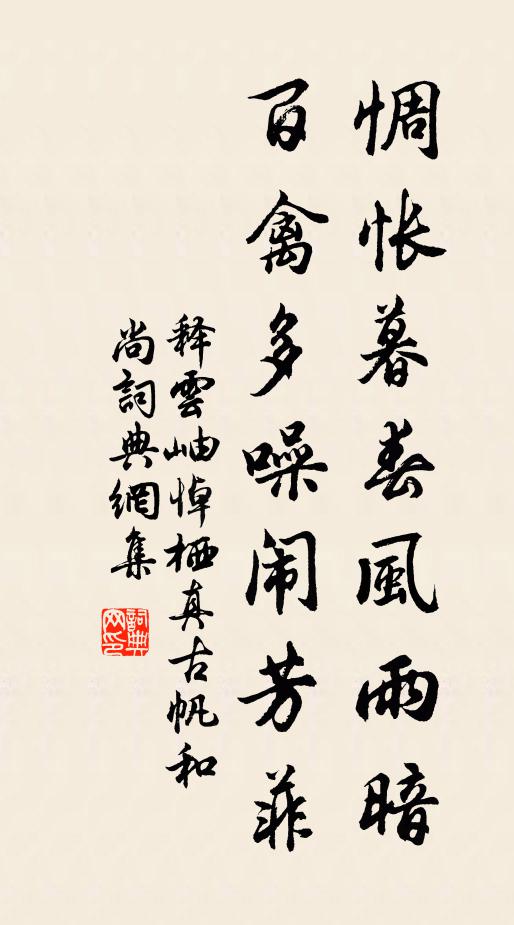 惆悵暮春風雨暗
百禽多噪闹芳菲
释雲岫悼栖真古帆和
尚詞典網集
詞典
网印